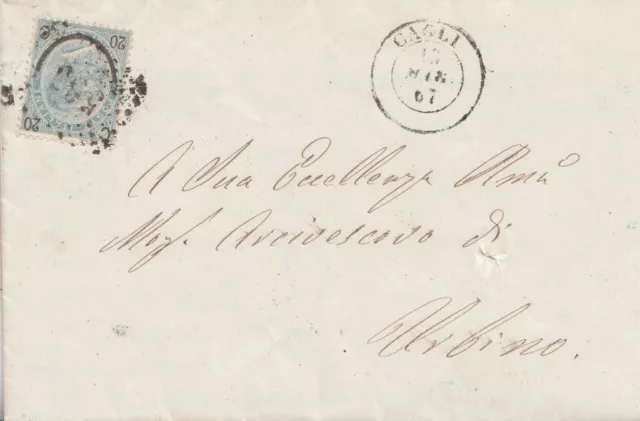 20
20
CAGLI
MAR
67
A Sua Eccellenza Rmã
Mons. Arcivescovo di
Urbino.